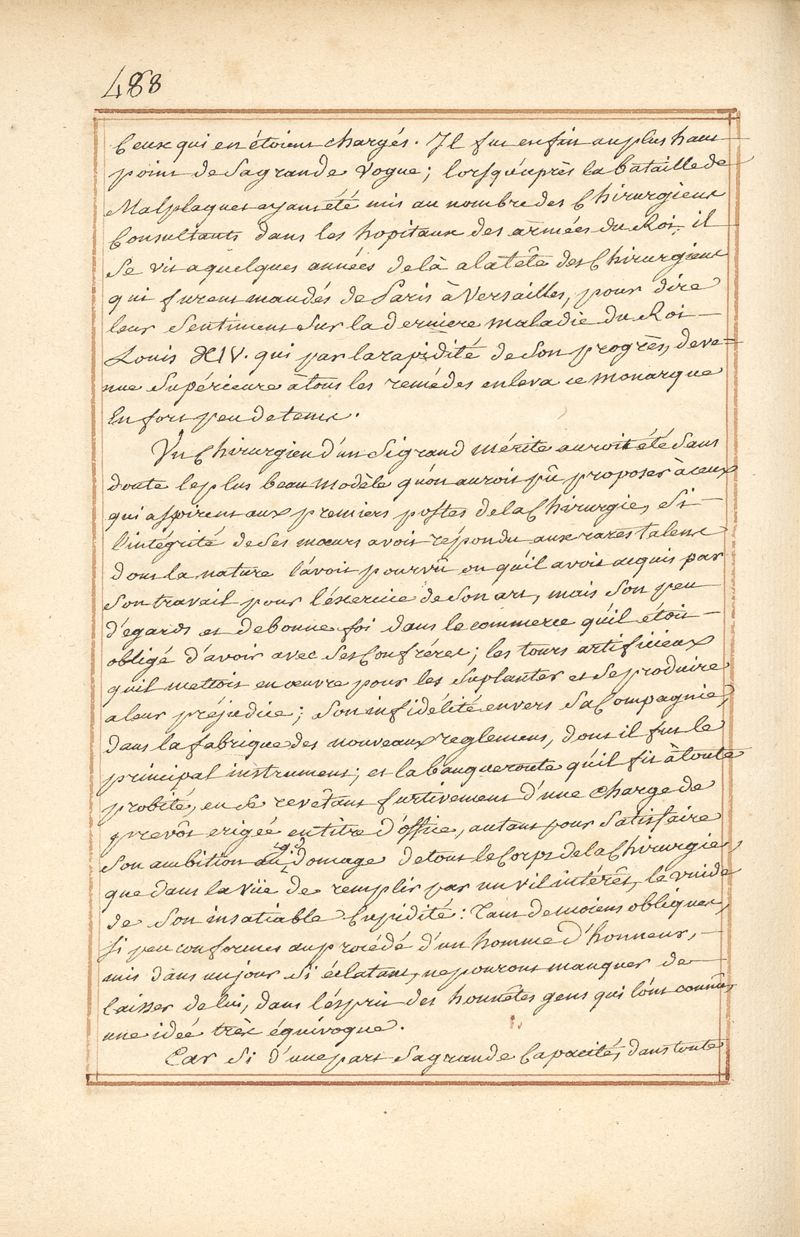 488
Ceux qui en étoient chargés. Il fut enfin au plus haut
point de Sa grande Vogue; lorsqu'après la bataille de
Malplaquet ayant été mis au nombre des Chirurgiens
Consultants dans les hopitaux des armées du Roi, il
Se vit a quelques années de là a la tête des Chirurgiens
qui furent mandés de Paris à Versailles, pour dire
leur Sentiment Sur la derniere maladie du Roi
Louis XIV. qui par la rapidité de Son progrès, deve=
nue Supérieure à tous les remèdes enleva ce monarque
En fort peu de tems.
Un Chirurgien d'un Si grand mérite auroit été Sans
doute le plus beau modèle qu'on auroit pû proposer à ceux
qui aspirent aux premiers postes de la Chirurgie, Si
l'intégrité de Ses mœurs avoit répondu aux rares talens
dont la nature l'avoit pourvû ou qu'il avoit acquis par
Son travail pour l'éxercice de Son art, mais Son peu
d'egards et de bonne foi dans le commerce qu'il étoit
obligé d'avoir avec Ses Confréres; les tours artificieux
qu'il mettoit en œuvre pour les Suplanter et Se produire
a leur préjudice; Son infidélité envers Sa Compagnie,
dans la fabrique des nouveaux reglemens, dont il fut le
principal instrument; et la banqueroute qu'il fit à toute
probité, en Se revêtant furtivement d'une charge de
prevôt erigée en titre d'office, autant pour Satisfaire
Son ambition au domage de tous le Corps de la Chirurgie,
que dans la vüe de remplir par un vil intérêt, le vuide
de Son insatiable Cupidité: Tant de moiens obliques,
Si peu conformes au procédé d'un homme d'honneur,
mis dans un jour Si éclatant, ne pouront manquer de
laisser de lui, dans l'ésprit des honnêtes gens qui l'ont connu,
une ideé très équivoque.
Car Si d'une part Sa grande Capacités dans toute